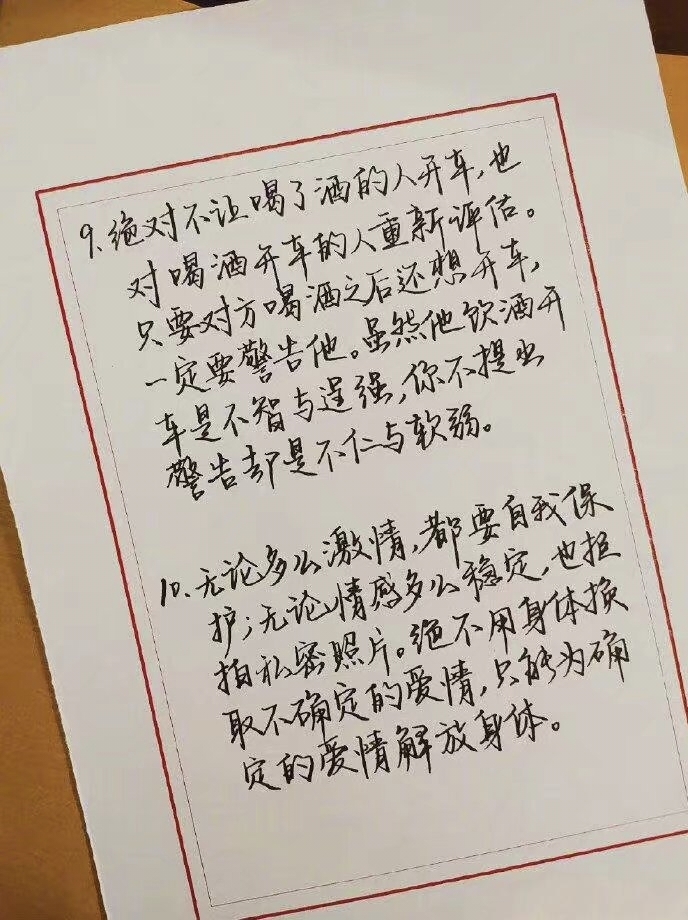 9、绝对不让喝了酒的人开车,也
对喝酒开车的人重新评估。
只要对方喝酒之后还想开车,
一定要警告他。虽然他饮酒开
车是不智与逞强,你不提出
警告却是不仁与软弱。
10、无论多么激情,都要自我保
护;无论情感多么稳定,也拒
拍私密照片。绝不用身体换
取不确定的爱情,只能为确
定的爱情解放身体。